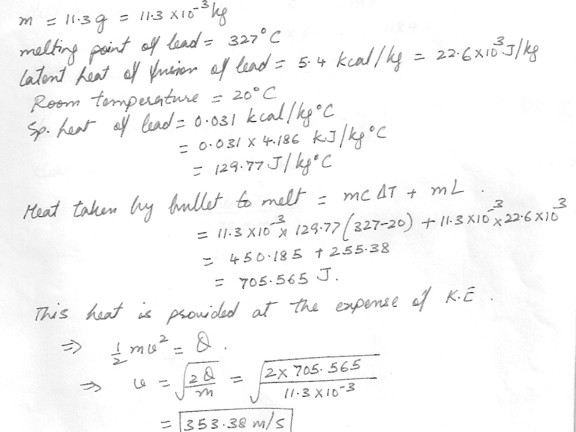 m = 11.3 g = 11.3 x 10⁻³ kg
melting point of lead = 327°C
latent heat of fusion of lead = 5.4 kcal/kg = 22.6 x 10³ J/kg
Room temperature = 20°C
Sp. heat of lead = 0.031 kcal/kg°C
= 0.031 x 4.186 KJ/kg°C
= 129.77 J/kg°C
Heat taken by bullet to melt = mcΔT + mL.
= 11.3 x 10⁻³ x 129.77 (327-20) + 11.3 x 10⁻³ x 22.6 x 10³
= 450.185 + 255.38
= 705.565 J.
This heat is provided at the expense of K.E.
⇒ 1/2 mv² = Q.
⇒ v = √(2Q/m) = √(2 x 705.565 / 11.3 x 10⁻³)
= 353.38 m/s